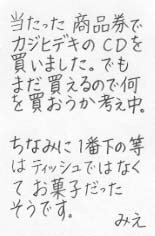 当たった 商品券で
カジヒデキの CDを
買いました。でも
まだ 買えるので何
を買おうか考え中。
ちなみに 1番下の等
は ティッシュではなく
て お菓子だった
そうです。
みえ